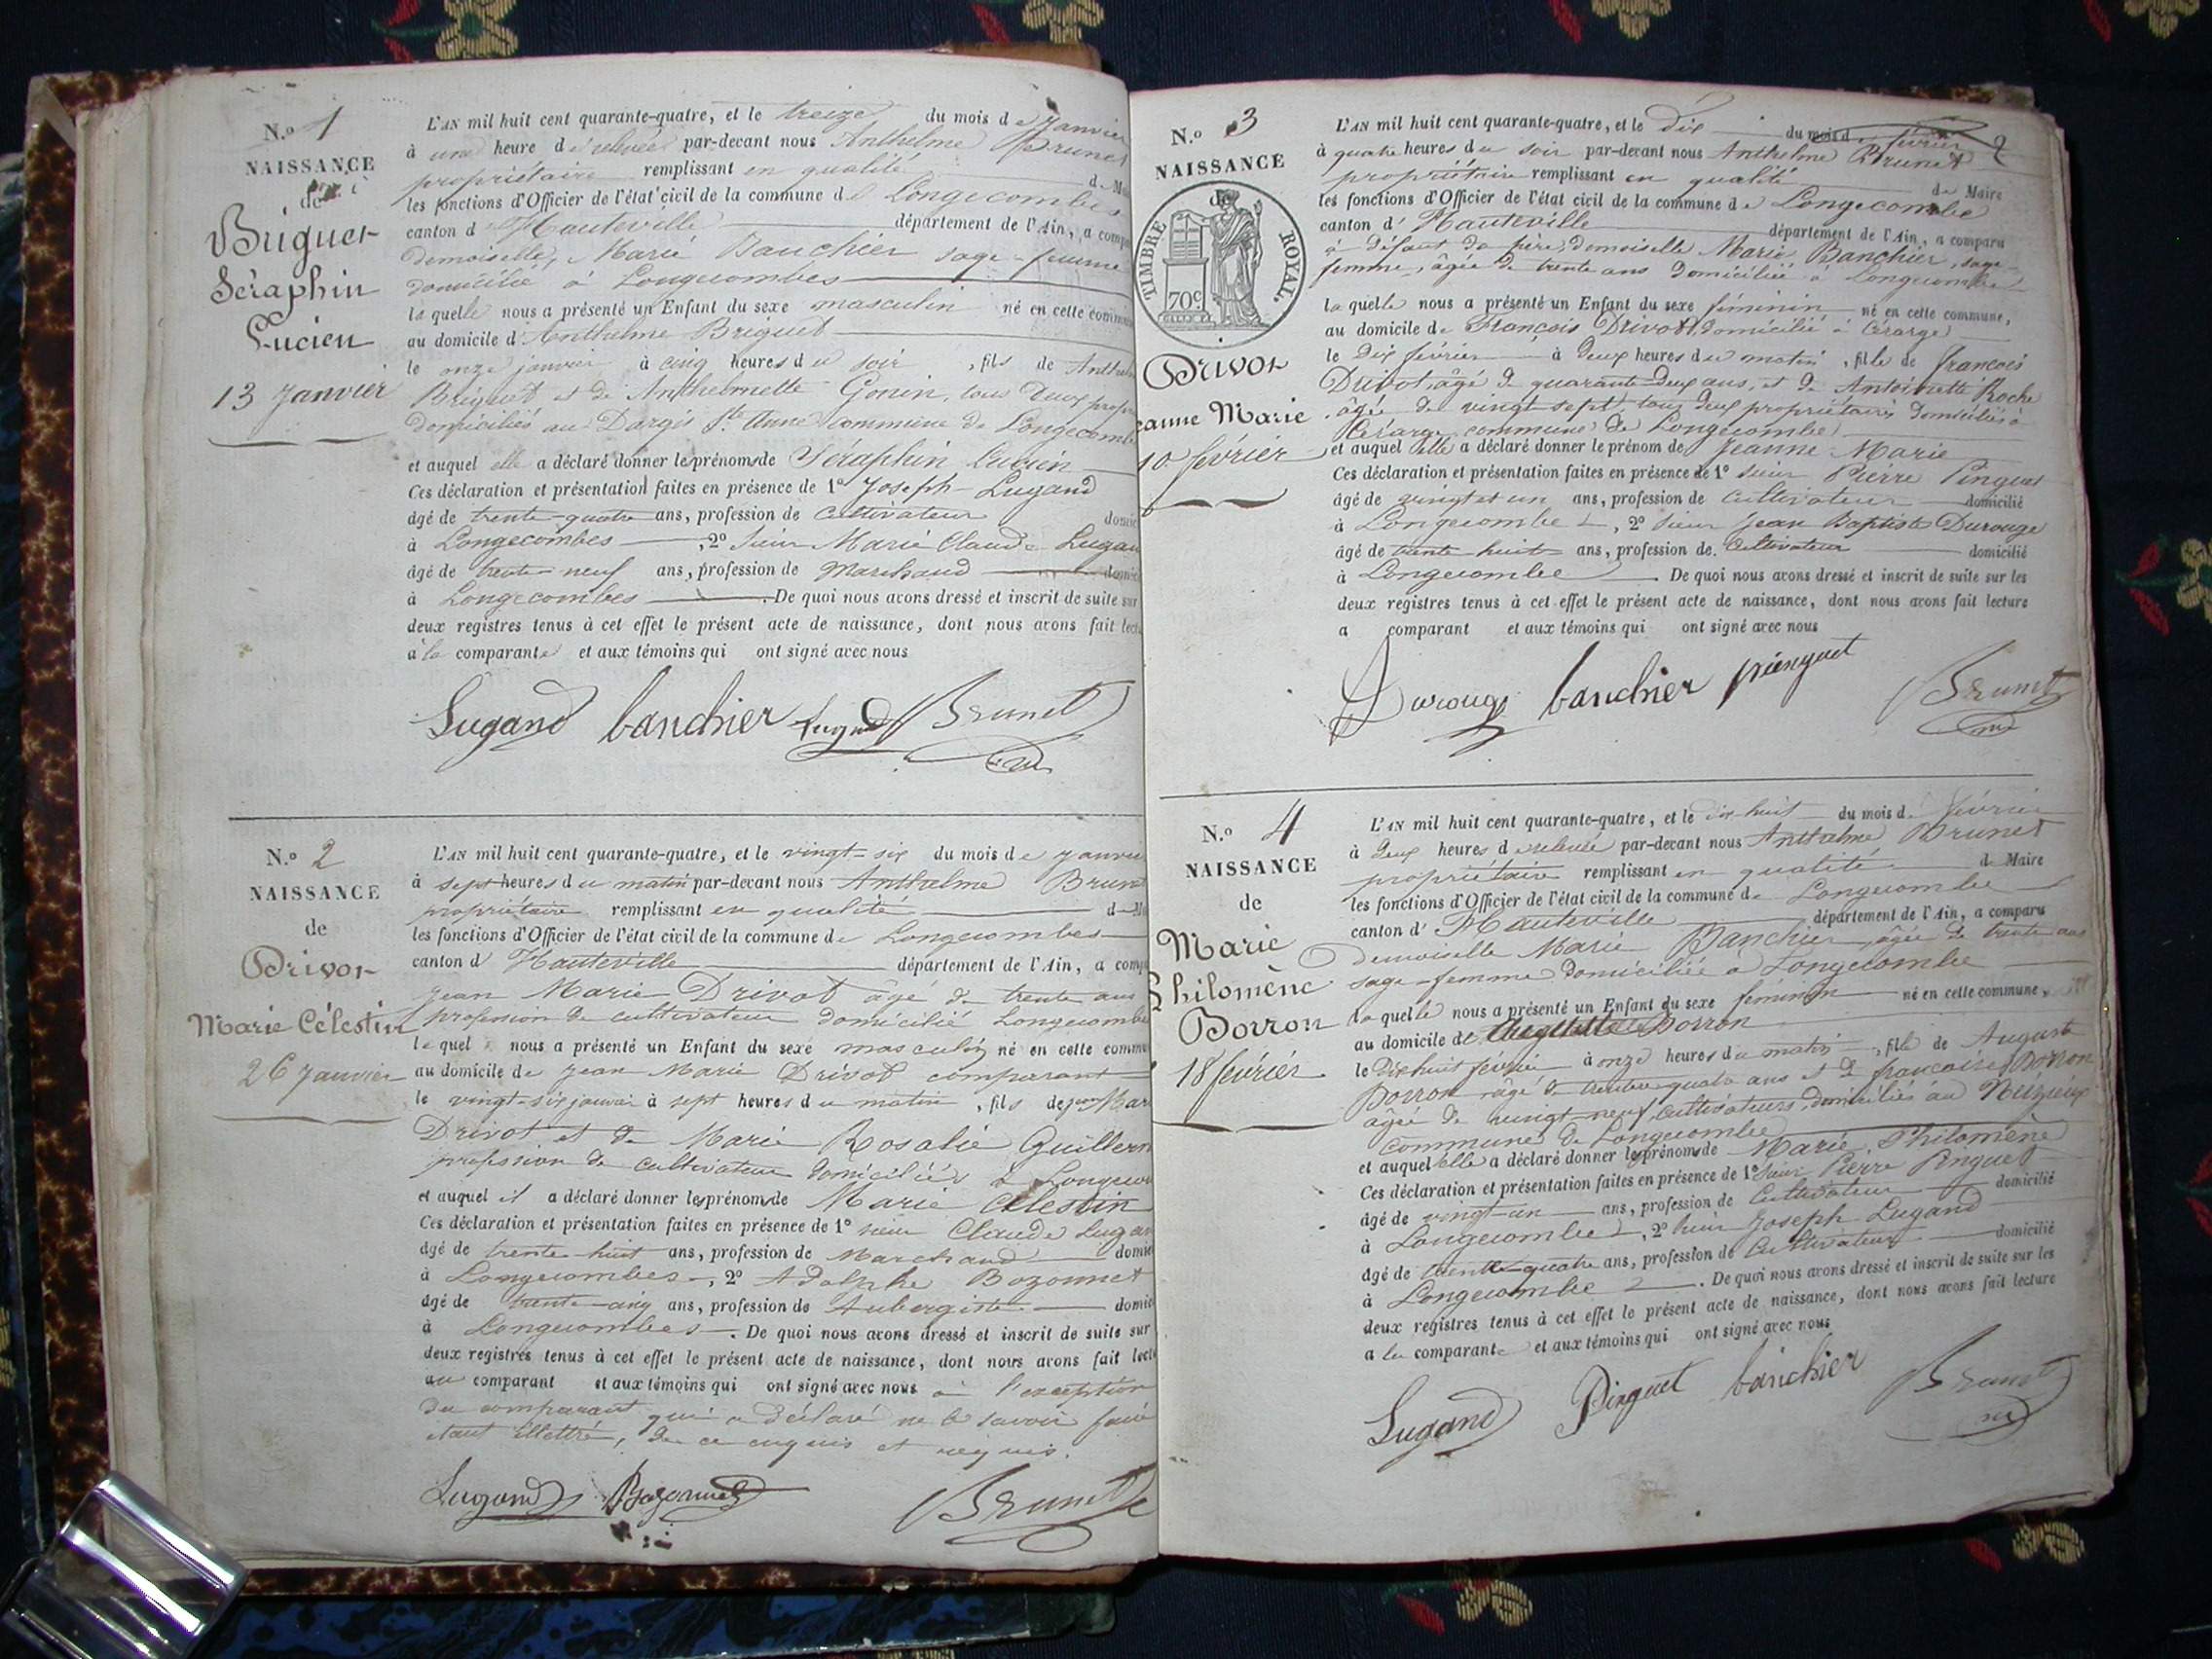 N.o 1
NAISSANCE
de
Briguet
Séraphin
Lucien
13 Janvier
L'AN mil huit cent quarante-quatre, et le treize du mois de Janvier
à une heure de relevée par-devant nous Anthelme Brunet
propriétaire remplissant en qualité de
les fonctions d'Officier de l'état civil de la commune de Longecombes
canton d'Hauteville département de l'Ain, a
demoiselle Marie Banchier sage-femme
domicilié à Longecombes
laquelle nous a présenté un Enfant du sexe masculin né en cette
au domicile d'Anthelme Briguet
le onze janvier à cinq heures du soir, fils de
Briguet et de Anthelmette Gonin, tous deux
domiciliés au Dargis Ste Anne commune de
et auquel elle a déclaré donner les prénoms de Séraphin Lucien
Ces déclaration et présentation faites en présence de 1o Joseph Lugand
âgé de trente-quatre ans, profession de Cultivateur
à Longecombes, 2o Sieur Marie Claude
âgé de trente-neuf ans, profession de Marchand
à Longecombes. De quoi nous avons dressé et inscrit de suite sur
deux registres tenus à cet effet le présent acte de naissance, dont nous avons fait
à la comparante et aux témoins qui ont signé avec nous
Lugand banchier Lugand Brunet
N.o 2
NAISSANCE
de
Drivot
Marie Célestin
26 Janvier
L'AN mil huit cent quarante-quatre, et le vingt-six du mois de
à sept heures du matin par-devant nous Anthelme
propriétaire remplissant en qualité
les fonctions d'Officier de l'état civil de la commune de Longecombes
canton d'Hauteville département de l'Ain, a
Jean Marie Drivot âgé de trente ans
profession de cultivateur domicilié
lequel nous a présenté un Enfant du sexe masculin né en cette
au domicile de Jean Marie Drivot comparant
le vingt-six janvier à sept heures du matin, fils de Jean
Drivot et de Marie Rosalie
profession de cultivateur domiciliés à
et auquel il a déclaré donner les prénoms de Marie Célestin
Ces déclaration et présentation faites en présence de 1o sieur Claude
âgé de trente-huit ans, profession de Marchand
à Longecombes, 2o Adolphe Bozonnet
âgé de trente-cinq ans, profession de Aubergiste
à Longecombes. De quoi nous avons dressé et inscrit de suite sur
deux registres tenus à cet effet le présent acte de naissance, dont nous avons fait
au comparant et aux témoins qui ont signé avec nous à l'exception
du comparant qui a déclaré ne le savoir faire
étant illettré, de ce enquis et requis.
Lugand Bozonnet Brunet
N.o 3
NAISSANCE
de
TIMBRE ROYAL.
70c
Drivot
Marie
10 février
2
L'AN mil huit cent quarante-quatre, et le dix du mois de février
à quatre heures du soir par-devant nous Anthelme Brunet
propriétaire remplissant en qualité de Maire
les fonctions d'Officier de l'état civil de la commune de Longecombe
canton d'Hauteville département de l'Ain, a comparu
à défaut du père, demoiselle Marie Banchier, sage-
femme, âgée de trente ans domiciliée à Longecombe
laquelle nous a présenté un Enfant du sexe féminin né en cette commune,
au domicile de François Drivot, domicilié à
le dix février à deux heures du matin, fille de françois
Drivot, âgé de quarante-deux ans, et de Antoinette Roche
âgée de vingt sept, tous deux propriétaires domiciliés à
commune de Longecombe
et auquel elle a déclaré donner le prénom de Jeanne Marie
Ces déclaration et présentation faites en présence de 1o sieur Pierre Pinguet
âgé de vingt et un ans, profession de cultivateur domicilié
à Longecombe, 2o sieur Jean Baptiste Durouge
âgé de trente huit ans, profession de Cultivateur domicilié
à Longecombe. De quoi nous avons dressé et inscrit de suite sur les
deux registres tenus à cet effet le présent acte de naissance, dont nous avons fait lecture
a comparant et aux témoins qui ont signé avec nous
Durouge banchier pinguet Brunet
N.o 4
NAISSANCE
de
Marie
Philomène
Borron
18 février
L'AN mil huit cent quarante-quatre, et le dix-huit du mois de février
à deux heures de relevée par-devant nous Anthelme Brunet
propriétaire remplissant en qualité de Maire
les fonctions d'Officier de l'état civil de la commune de Longecombe
canton d'Hauteville département de l'Ain, a comparu
demoiselle Marie Banchier, âgée de trente ans
sage-femme domiciliée à Longecombe
laquelle nous a présenté un Enfant du sexe féminin né en cette commune,
au domicile de Borron
le dix huit février à onze heures du matin, fille de Auguste
Borron âgé de trente quatre ans et de francoise Borron
âgée de vingt-neuf, Cultivateurs, domiciliés au
commune de Longecombe
et auquel elle a déclaré donner les prénoms de Marie Philomène
Ces déclaration et présentation faites en présence de 1o Sieur Pierre Pinguet
âgé de vingt-un ans, profession de Cultivateur domicilié
à Longecombe, 2o sieur Joseph Lugand
âgé de trente-quatre ans, profession de Cultivateur domicilié
à Longecombe. De quoi nous avons dressé et inscrit de suite sur les
deux registres tenus à cet effet le présent acte de naissance, dont nous avons fait lecture
a la comparante et aux témoins qui ont signé avec nous
Lugand Pinguet banchier Brunet